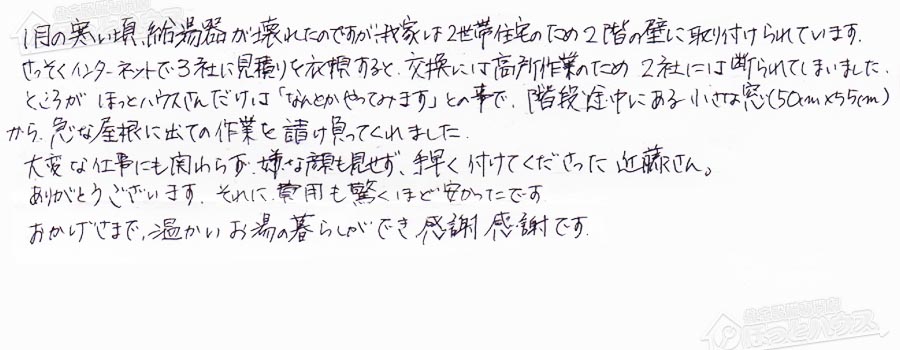 1月の寒い頃、給湯器が壊れたのですが、我家は2世帯住宅のため2階の壁に取り付けられています。
さっそくインターネットで3社に見積りを依頼すると、交換には高所作業のため2社には断られてしまいました。
ところがほっとハウスさんだけは「なんとかやってみます」との事で、階段途中にある小さな窓(50cm×55cm)
から、急な屋根に出ての作業を請け負ってくれました。
大変な仕事にも関わらず、嫌な顔も見せず、手早く付けてくださった近藤さん。
ありがとうございます。それに費用も驚くほど安かったです
おかげさまで、温かいお湯の暮らしができ感謝感謝です。
ほっとハウス